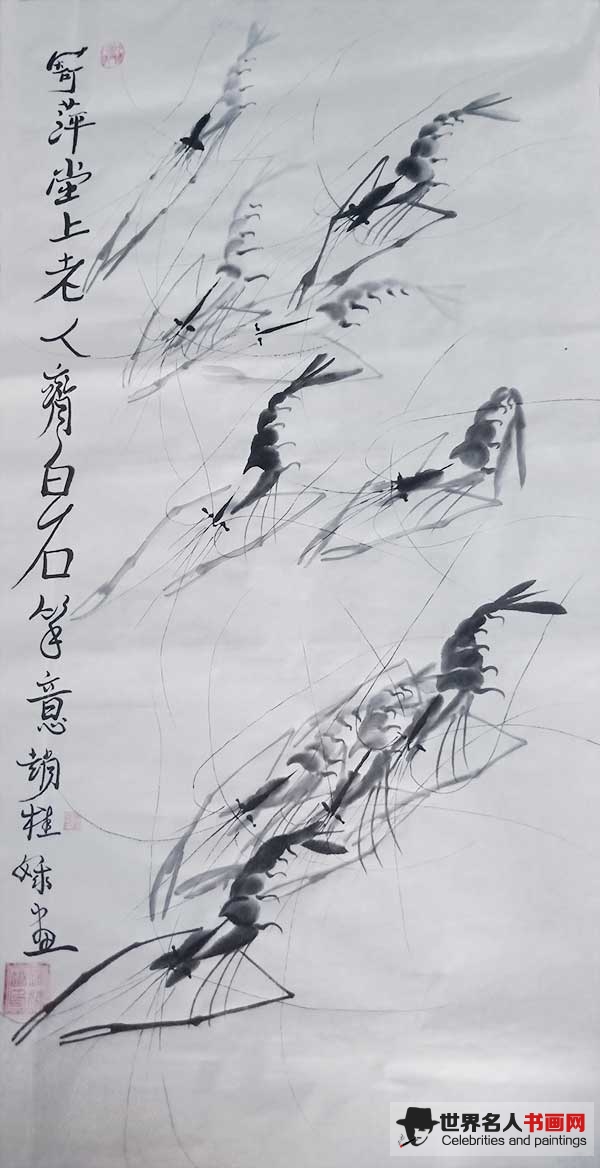 寄萍堂上老人齊白石笔意趙桂畫
世界名人书画网
Celebrities and paintings